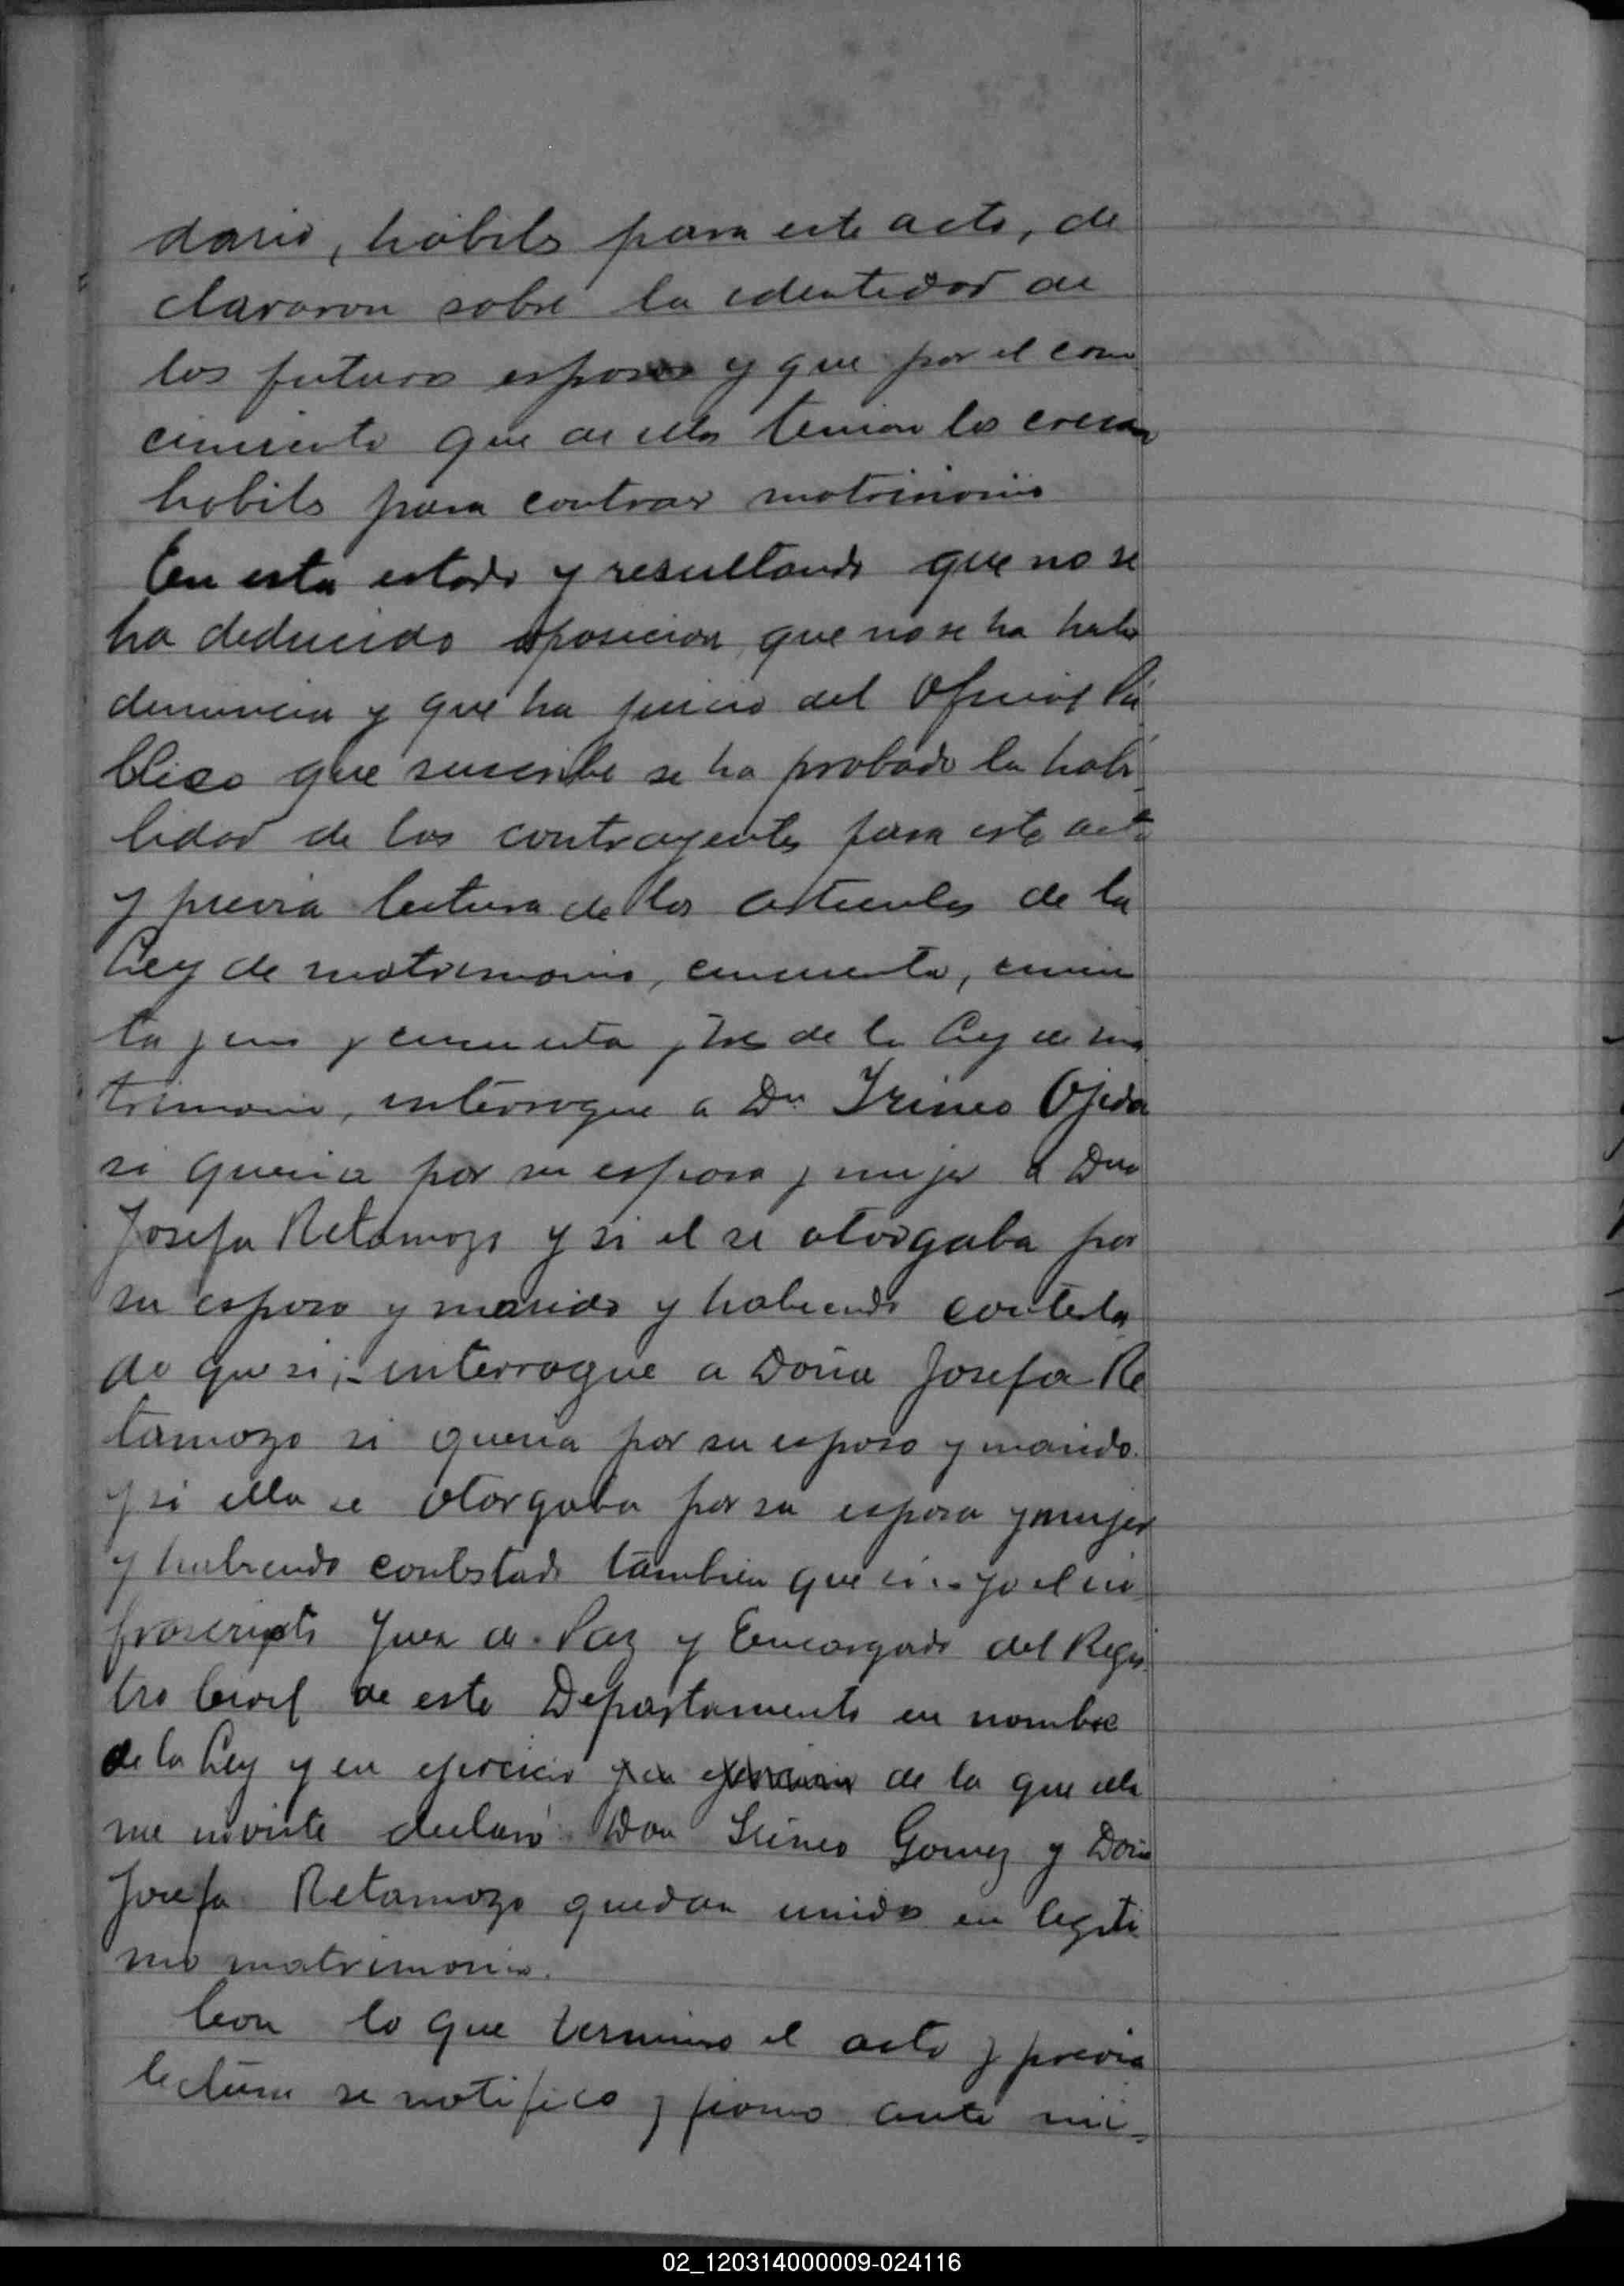 dario, hábiles para este acto, de
clararon sobre la identidad de
los futuros esposos y que por el cono
cimiento que de ellos tenian los creian
habiles para contraer matrimonio
En esta estado y resultando que no se
ha deducido oposicion, que no se ha hecho
denuncia y que ha juicio del Oficial Pú
blico que suscribe se ha probado la habi
lidad de los contrayentes para este acto
y previa lectura de los articulos de la
Ley de matrimonio, cincuenta, cincuen
ta y uno y cincuenta y tres de la Ley de ma
trimonio, interrogue a Dn Irineo Ojeda
si queria por su esposa y mujer a Dña
Josefa Retamozo y si el se otorgaba por
su esposo y marido y habiendo contesta
do que si;- interrogue a Doña Josefa Re
tamozo si queria por su esposo y marido
y si ella se otorgaba por su esposa y mujer
y habiendo contestado tambien que si.- yo el in
frascripto Juez de Paz y Encargado del Regis
tro Civil de este Departamento en nombre
de la Ley y en ejercicio de la que ella
me inviste declaro Don Irineo Gomez y Doña
Josefa Retamozo quedan unidos en legiti
mo matrimonio.
Con lo que termino el acto y previa
lectura se notifico y firmo ante mi-
02_120314000009-024116